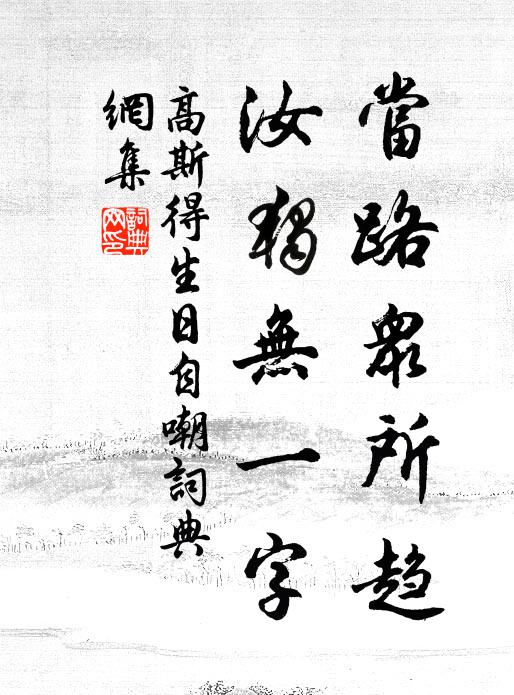 當路眾所趨
汝獨無一字
高斯得生日自嘲詞典
網集
詞典
网印